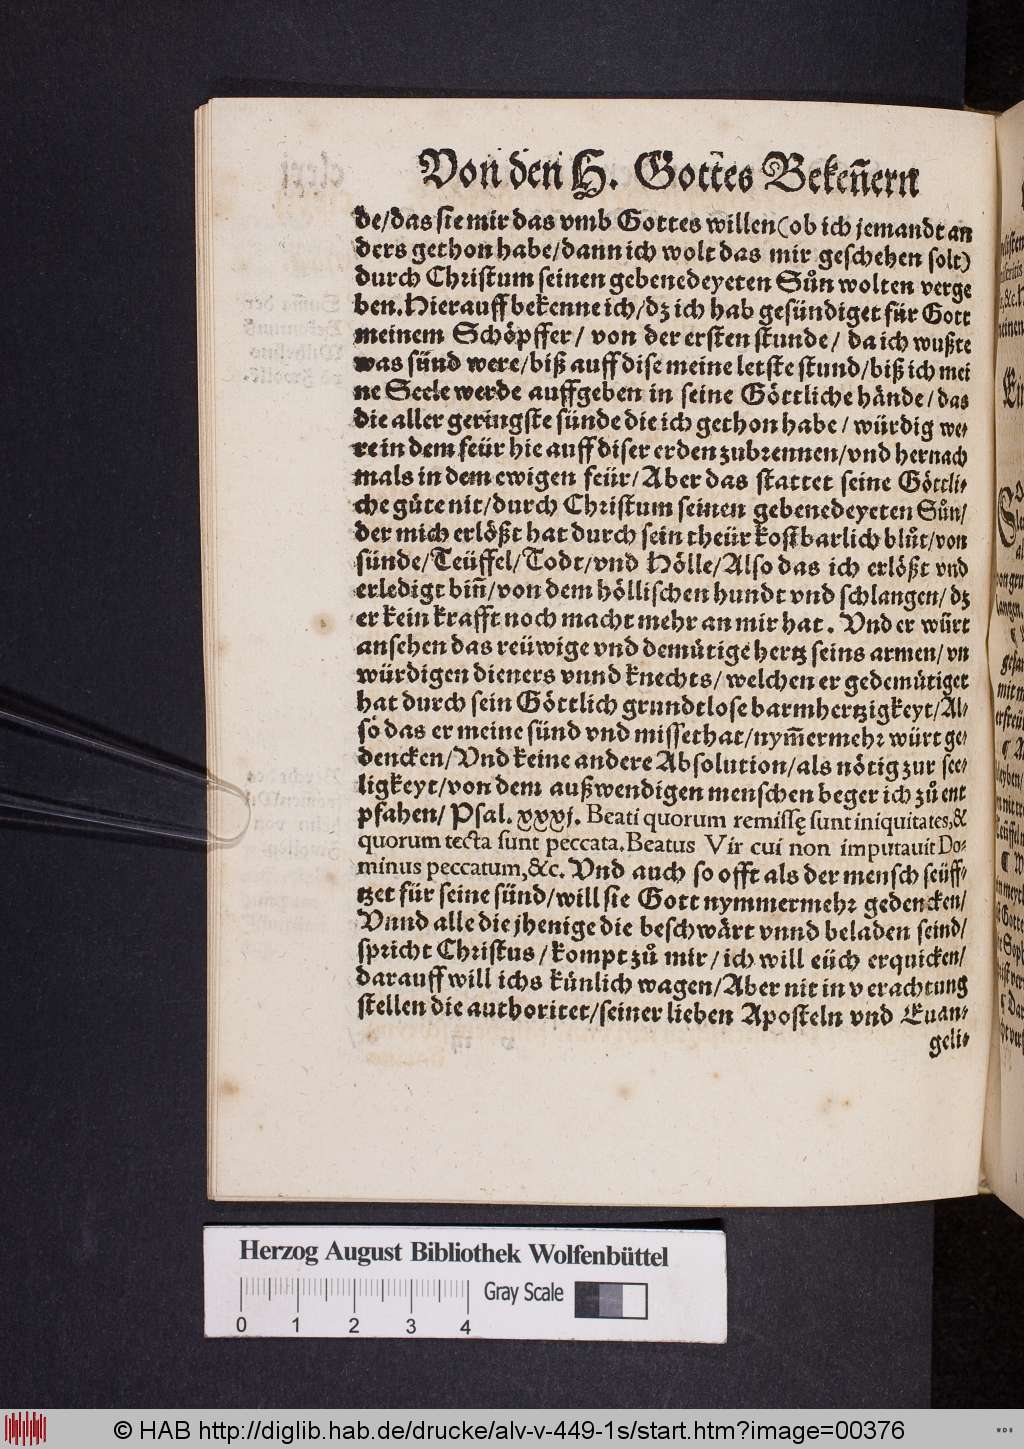 Von den H. Gottes Bekeñern
de/das sie mir das vmb Gottes willen(ob ich jemandt an
ders gethon habe/dann ich wolt das mir geschehen solt)
durch Christum seinen gebenedeyeten Sůn wolten verge
ben. Hierauff bekenne ich/dz ich hab gesündiget für Gott
meinem Schöpffer/ von der ersten stunde/ da ich wußte
was sünd were/biß auff dise meine letste stund/biß ich mei
ne Seele werde auffgeben in seine Göttliche hände/das
die aller geringste sünde die ich gethon habe/würdig we-
re in dem feür hie auff diser erden zubrennen/vnd hernach
mals in dem ewigen feür/Aber das stattet seine Göttli-
che gůte nit/durch Christum seinen gebenedeyeten Sůn/
der mich erlößt hat durch sein theür kostbarlich blůt/von
sünde/Teüffel/Todt/vnd Hölle/Also das ich erlößt vnd
erledigt biñ/von dem höllischen hundt vnd schlangen/dz
er kein krafft noch macht mehr an mir hat. Vnd er würt
ansehen das reüwige vnd demůtige hertz seins armen/vn
würdigen dieners vnnd knechts/welchen er gedemůtiget
hat durch sein Göttlich grundtlose barmhertzigkeyt/Al-
so das er meine sünd vnd missethat/nym̃ermehr würt ge-
dencken/Vnd keine andere Absolution/als nötig zur see-
ligkeyt/von dem außwendigen menschen beger ich zů ent
pfahen/ Psal. xxxj. Beati quorum remissę sunt iniquitates,&
quorum tecta sunt peccata. Beatus Vir cui non imputauit Do-
minus peccatum,&c. Vnd auch so offt als der mensch seüff-
tzet für seine sünd/will sie Gott nymmermehr gedencken/
Vnnd alle die jhenige die beschwärt vnnd beladen seind/
spricht Christus/kompt zů mir/ich will eüch erquicken/
darauff will ichs künlich wagen/Aber nit in verachtung
stellen die authoritet/seiner lieben Aposteln vnd Euan-
geli-
Herzog August Bibliothek Wolfenbüttel
Gray Scale
0 1 2 3 4
© HAB http://diglib.hab.de/drucke/alv-v-449-1s/start.htm?image=00376